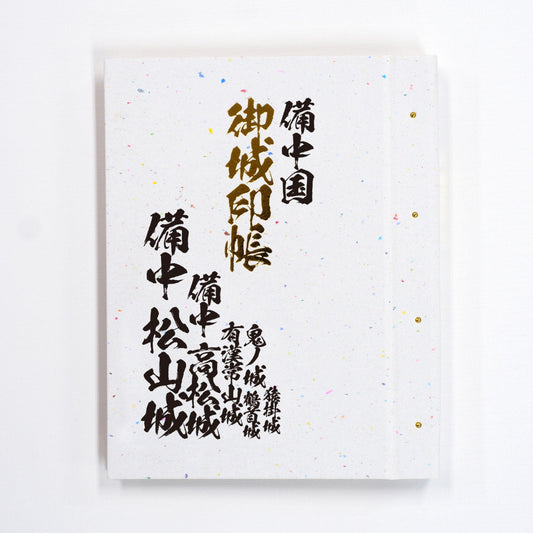 備中国
御城印帳
猿掛城
鬼ノ城 鶴首城
有漢常山城
備中高松城
備中松山城